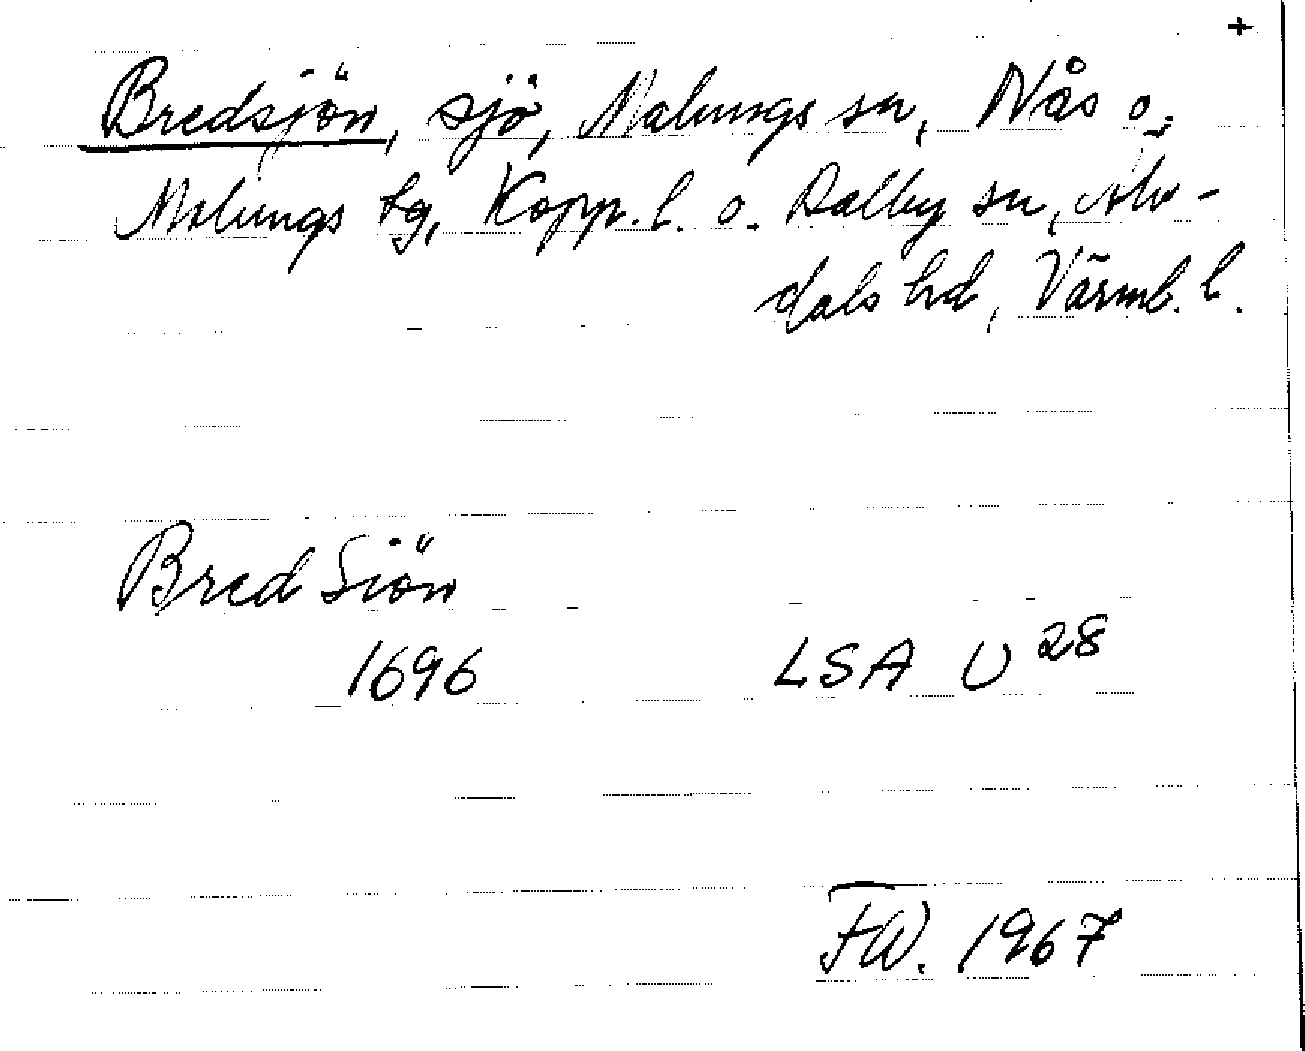 +
Bredsjön, sjö, Malungs sn, Nås o.
Malungs tg, Kopp. l. o. Dalby sn, Älv-
dals hd, Värml. l.
Bred Siön
1696 LSA U 28
FW. 1967